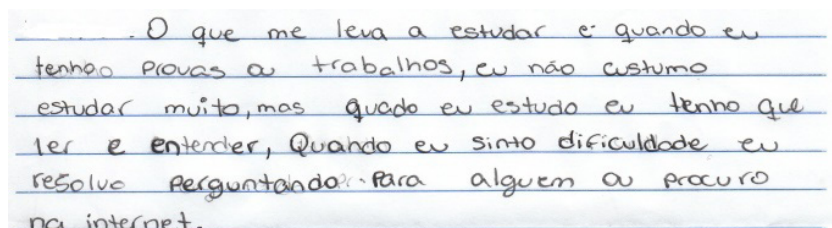 . O que me leva a estudar e quando eu
tenho provas ou trabalhos, eu não custumo
estudar muito, mas quado eu estudo eu tenho que
ler e entender, Quando eu sinto dificuldade eu
resolvo perguntando para alguem ou procuro
na internet.